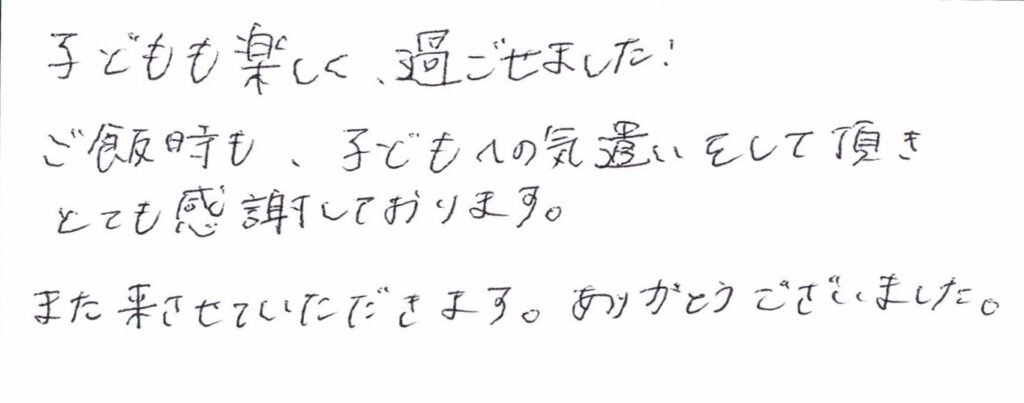 子どもも楽しく、過ごせました!
ご飯時も、子どもへの気遣いをして頂き
とても感謝しております。
また来させていただきます。ありがとうございました。